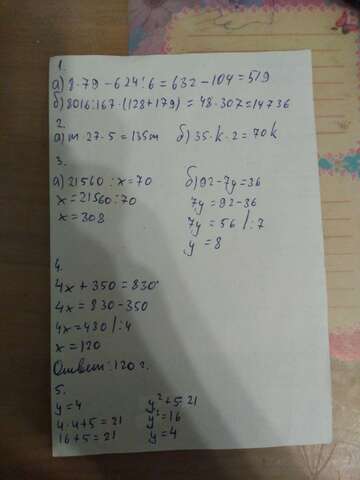 1.
а) 8·79-624:6=632-104=519
б) 8016:167·(128+179)=48·307=14736
2.
а) m·27·5=135m б) 35·k·2=70k
3.
а) 21560:x=70 б) 92-7y=36
x=21560:70 7y=92-36
x=308 7y=56 /:7
y=8
4.
4x+350=830
4x=830-350
4x=480 /:4
x=120
Ответ: 120 г.
5.
y=4 y²+5=21
4·4+5=21 y²=16
16+5=21 y=4